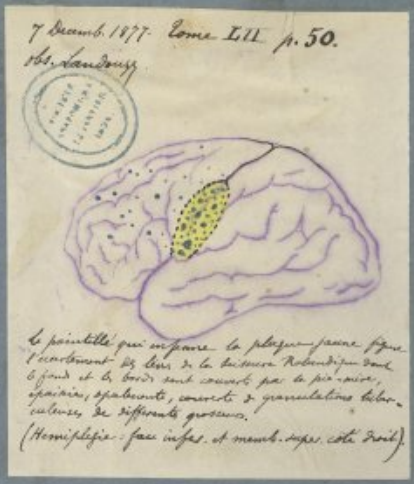 7 Decemb. 1877. Tome LII p. 50.
obs. Landouzy
Le pointillé qui enferme la plaque jaune figure
l'écartement des levres de la Scissure Rolandique dont
le fond et les bords sont couverts par la pie-mère,
épaissie, opalescente, couverte de granulations tuber-
culeuses de différentes grosseurs.
(Hemiplégie: face infer. et memb. super. coté droit).